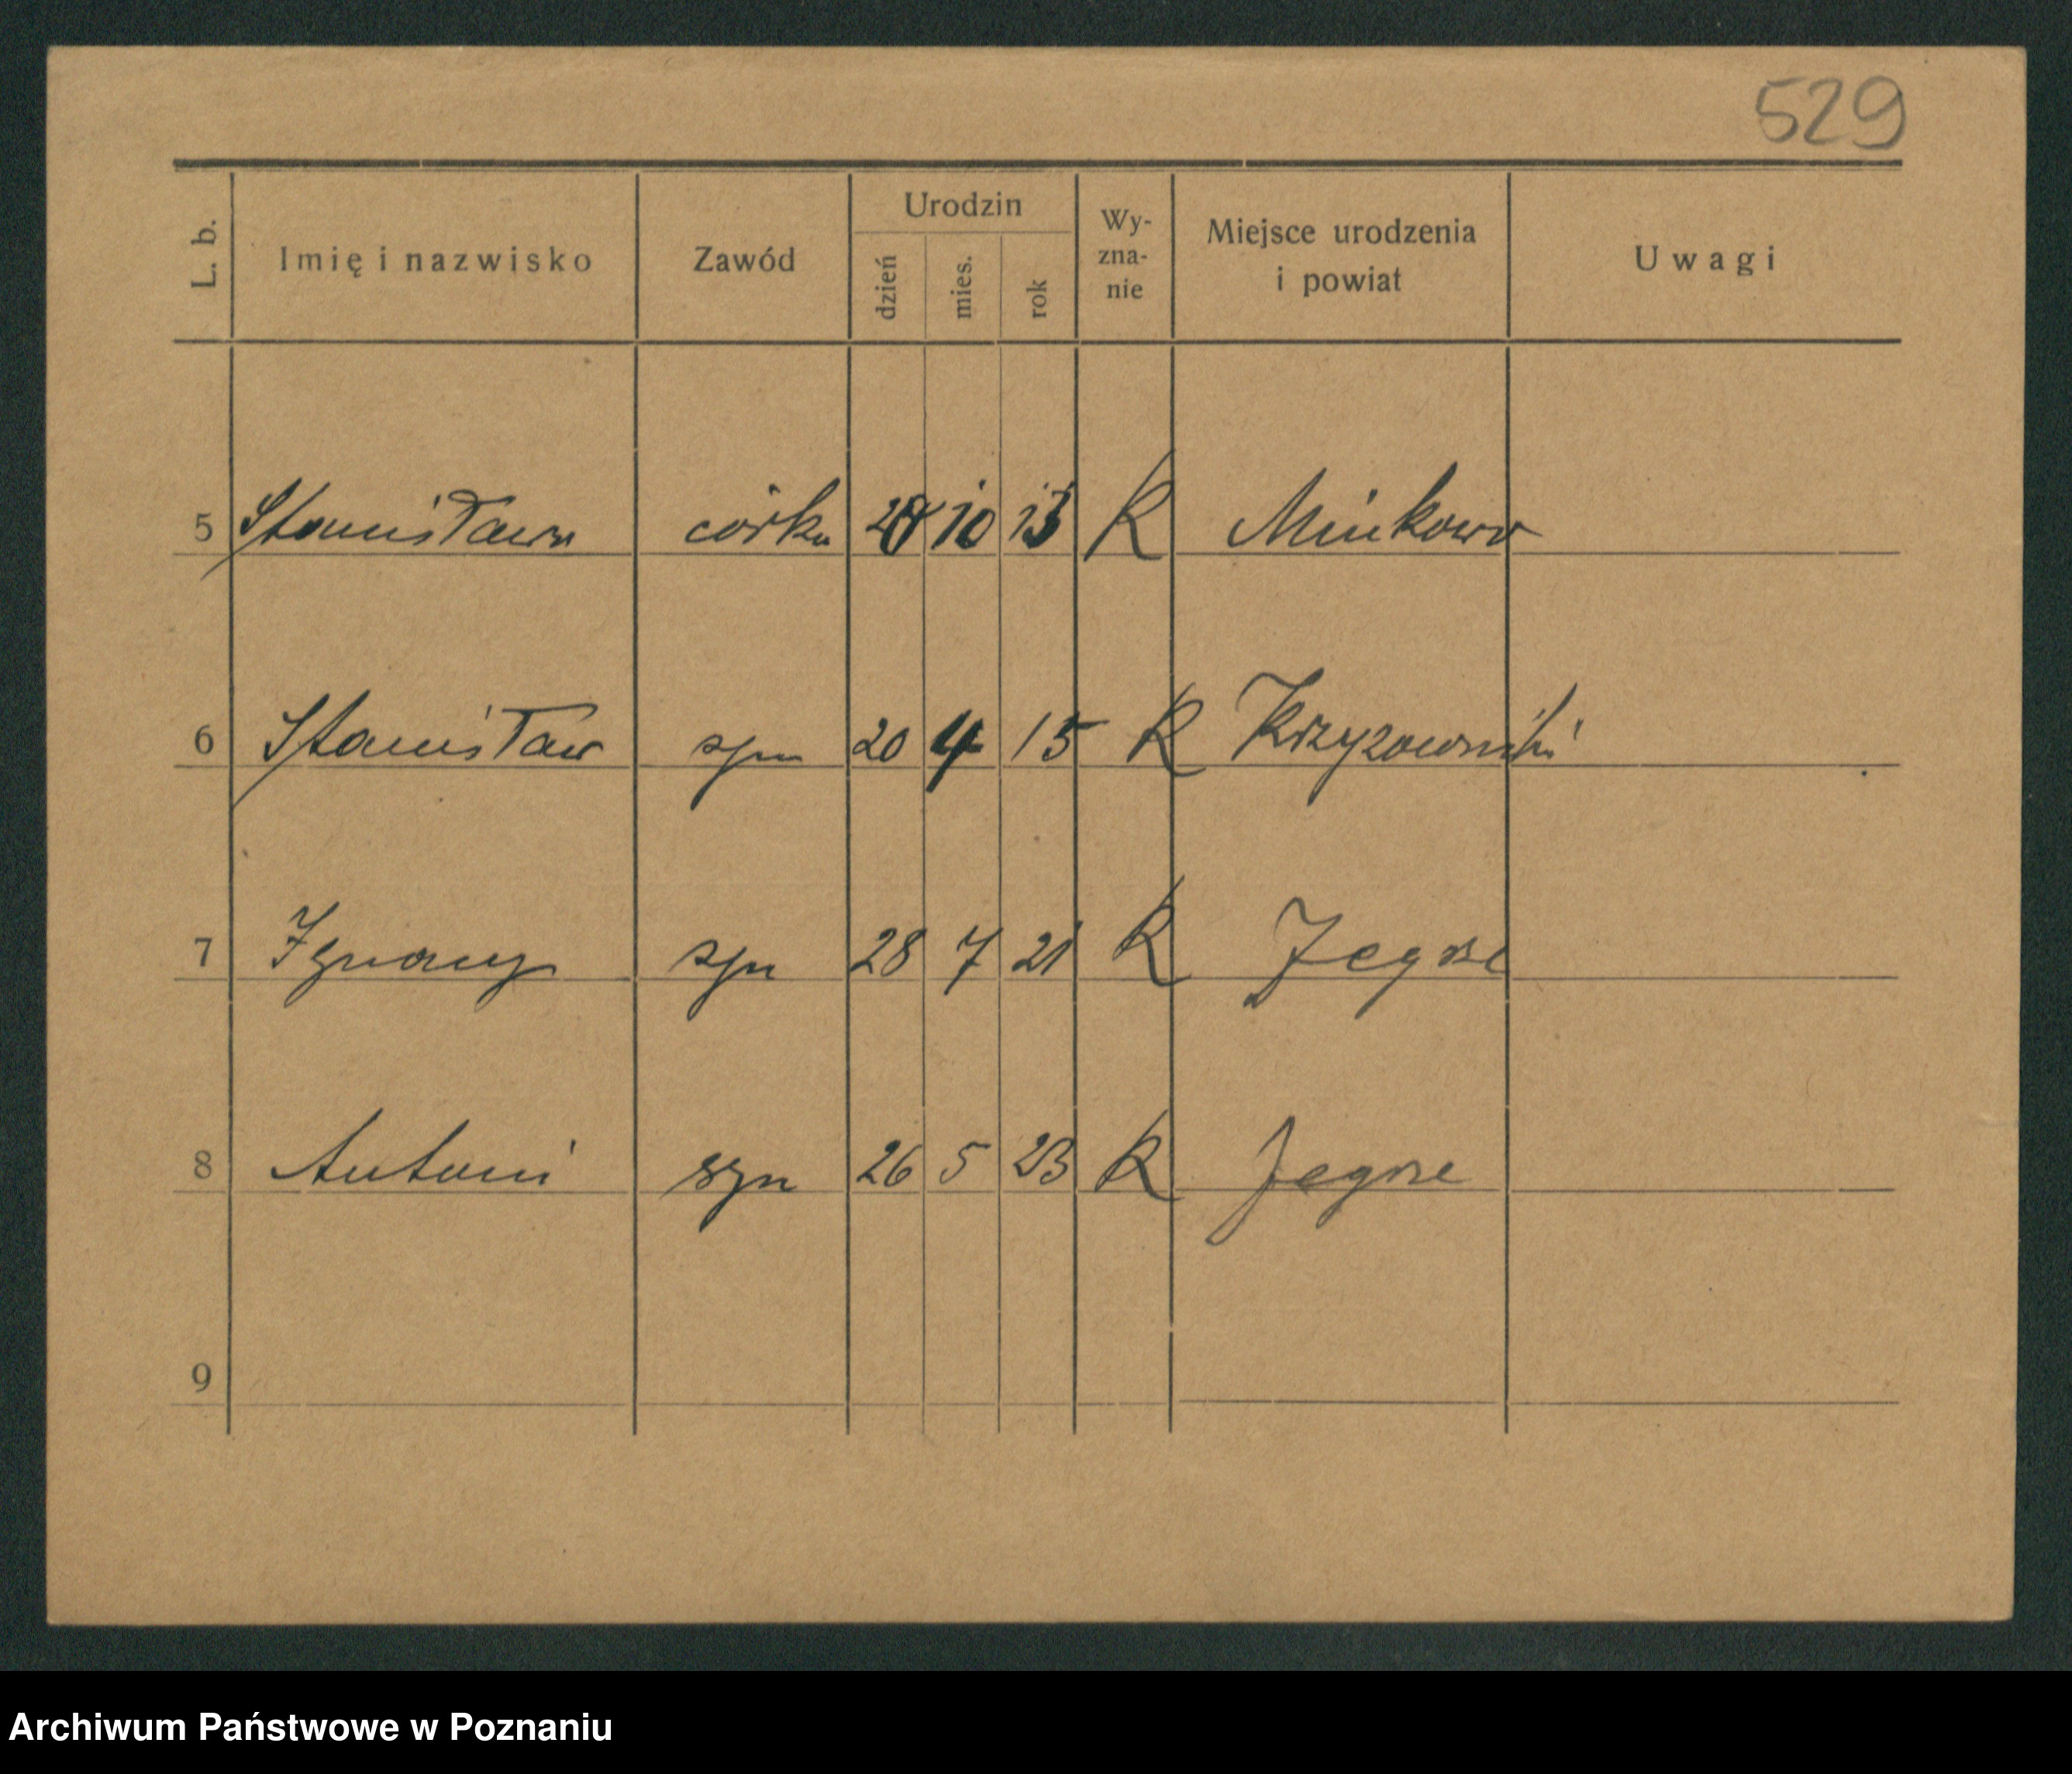 529
L. b. Imię i nazwisko Zawód Urodzin dzień mies. rok Wy-zna-nie Miejsce urodzenia i powiat Uwagi
5 Stanisława córka 10 13 K Minkowo
6 Stanisław syn 20 4 15 K
7 Ignacy syn 28 7 21 K Żegrze
8 Antoni syn 26 5 23 K Żegrze
9
Archiwum Państwowe w Poznaniu